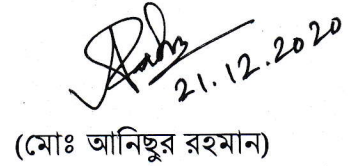 21.12.2020
(মোঃ আনিছুর রহমান)